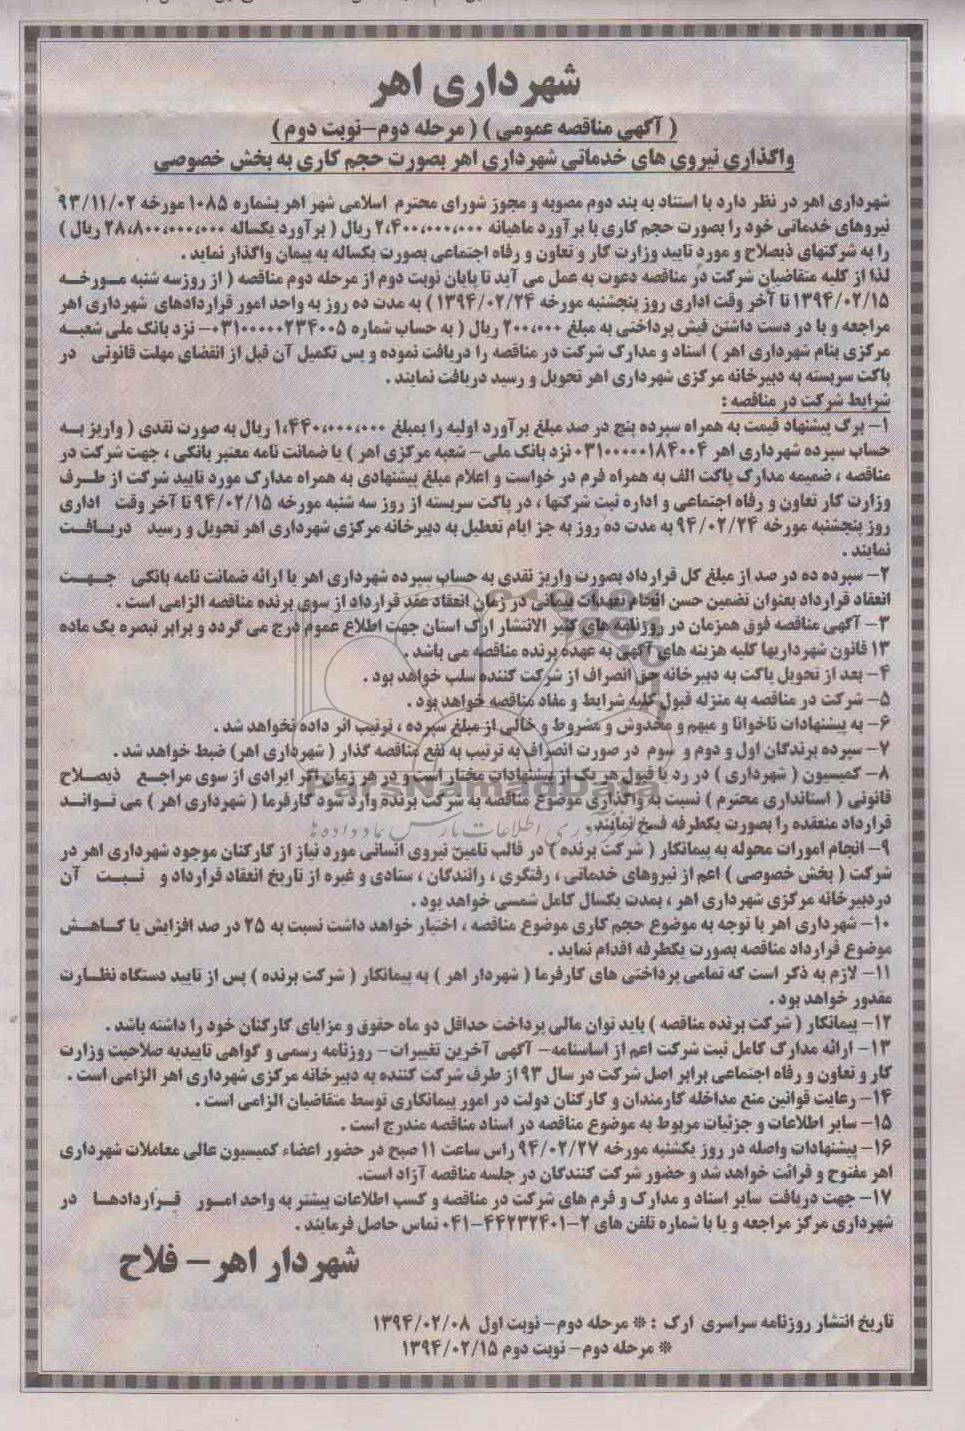 شهرداری اهر
( آگهی مناقصه عمومی ) ( مرحله دوم-نوبت دوم )
واگذاری نیروی های خدماتی شهرداری اهر بصورت حجم کاری به بخش خصوصی
شهرداری اهر در نظر دارد با استناد به بند دوم مصوبه و مجوز شورای محترم اسلامی شهر اهر بشماره ۱۰۸۵ مورخه ۹۳/۱۱/۰۲
نیروهای خدماتی خود را بصورت حجم کاری با برآورد ماهیانه ۲،۴۰۰،۰۰۰،۰۰۰ ریال ( برآورد یکساله ۲۸،۸۰۰،۰۰۰،۰۰۰ ریال )
را به شرکتهای ذیصلاح و مورد تایید وزارت کار و تعاون و رفاه اجتماعی بصورت یکساله به پیمان واگذار نماید .
لذا از کلیه متقاضیان شرکت در مناقصه دعوت به عمل می آید تا پایان نوبت دوم از مرحله دوم مناقصه ( از روزسه شنبه مورخه
۱۳۹۴/۰۲/۱۵ تا آخر وقت اداری روز پنجشنبه مورخه ۱۳۹۴/۰۲/۲۴ ) به مدت ده روز به واحد امور قراردادهای شهرداری اهر
مراجعه و با در دست داشتن فیش پرداختی به مبلغ ۲۰۰،۰۰۰ ریال ( به حساب شماره ۰۳۱۰۰۰۰۰۲۳۴۰۰۵- نزد بانک ملی شعبه
مرکزی بنام شهرداری اهر ) اسناد و مدارک شرکت در مناقصه را دریافت نموده و پس تکمیل آن قبل از انقضای مهلت قانونی در
پاکت سربسته به دبیرخانه مرکزی شهرداری اهر تحویل و رسید دریافت نمایند .
شرایط شرکت در مناقصه :
۱- برگ پیشنهاد قیمت به همراه سپرده پنج در صد مبلغ برآورد اولیه را بمبلغ ۱،۴۴۰،۰۰۰،۰۰۰ ریال به صورت نقدی ( واریز به
حساب سپرده شهرداری اهر ۰۳۱۰۰۰۰۰۱۸۴۰۰۴ نزد بانک ملی- شعبه مرکزی اهر ) یا ضمانت نامه معتبر بانکی ، جهت شرکت در
مناقصه ، ضمیمه مدارک پاکت الف به همراه فرم در خواست و اعلام مبلغ پیشنهادی به همراه مدارک مورد تایید شرکت از طرف
وزارت کار تعاون و رفاه اجتماعی و اداره ثبت شرکتها ، در پاکت سربسته از روز سه شنبه مورخه ۹۴/۰۲/۱۵ تا آخر وقت اداری
روز پنجشنبه مورخه ۹۴/۰۲/۲۴ به مدت ده روز به جز ایام تعطیل به دبیرخانه مرکزی شهرداری اهر تحویل و رسید دریافت
نمایند .
۲- سپرده ده در صد از مبلغ کل قرارداد بصورت واریز نقدی به حساب سپرده شهرداری اهر یا ارائه ضمانت نامه بانکی جهت
انعقاد قرارداد بعنوان تضمین حسن انجام تعهدات پیمانی در زمان انعقاد عقد قرارداد از سوی برنده مناقصه الزامی است .
۳- آگهی مناقصه فوق همزمان در روزنامه های کثیر الانتشار ارک استان جهت اطلاع عموم درج می گردد و برابر تبصره یک ماده
۱۳ قانون شهرداریها کلیه هزینه های آگهی به عهده برنده مناقصه می باشد .
۴- بعد از تحویل پاکت به دبیرخانه حق انصراف از شرکت کننده سلب خواهد بود .
۵- شرکت در مناقصه به منزله قبول کلیه شرایط و مفاد مناقصه خواهد بود .
۶- به پیشنهادات ناخوانا و مبهم و مخدوش و مشروط و خالی از مبلغ سپرده ، ترتیب اثر داده نخواهد شد .
۷- سپرده برندگان اول و دوم و سوم در صورت انصراف به ترتیب به نفع مناقصه گذار ( شهرداری اهر) ضبط خواهد شد .
۸- کمیسیون ( شهرداری ) در رد یا قبول هر یک از پیشنهادات مختار است و در هر زمان اگر ایرادی از سوی مراجع ذیصلاح
قانونی ( استانداری محترم ) نسبت به واگذاری موضوع مناقصه به شرکت برنده وارد شود کارفرما ( شهرداری اهر ) می تواند
قرارداد منعقده را بصورت یکطرفه فسخ نمایند
۹- انجام امورات محوله به پیمانکار ( شرکت برنده ) در قالب تامین نیروی انسانی مورد نیاز از کارکنان موجود شهرداری اهر در
شرکت ( بخش خصوصی ) اعم از نیروهای خدماتی ، رفتگری ، رانندگان ، ستادی و غیره از تاریخ انعقاد قرارداد و ثبت آن
دردبیرخانه مرکزی شهرداری اهر ، بمدت یکسال کامل شمسی خواهد بود .
۱۰- شهرداری اهر با توجه به موضوع حجم کاری موضوع مناقصه ، اختیار خواهد داشت نسبت به ۲۵ در صد افزایش یا کاهش
موضوع قرارداد مناقصه بصورت یکطرفه اقدام نماید .
۱۱- لازم به ذکر است که تمامی پرداختی های کارفرما ( شهردار اهر ) به پیمانکار ( شرکت برنده ) پس از تایید دستگاه نظارت
مقدور خواهد بود .
۱۲- پیمانکار ( شرکت برنده مناقصه ) باید توان مالی پرداخت حداقل دو ماه حقوق و مزایای کارکنان خود را داشته باشد .
۱۳- ارائه مدارک کامل ثبت شرکت اعم از اساسنامه- آگهی آخرین تغییرات- روزنامه رسمی و گواهی تاییدیه صلاحیت وزارت
کار و تعاون و رفاه اجتماعی برابر اصل شرکت در سال ۹۳ از طرف شرکت کننده به دبیرخانه مرکزی شهرداری اهر الزامی است .
۱۴- رعایت قوانین منع مداخله کارمندان و کارکنان دولت در امور پیمانکاری توسط متقاضیان الزامی است .
۱۵- سایر اطلاعات و جزئیات مربوط به موضوع مناقصه در اسناد مناقصه مندرج است .
۱۶- پیشنهادات واصله در روز یکشنبه مورخه ۹۴/۰۲/۲۷ راس ساعت ۱۱ صبح در حضور اعضاء کمیسیون عالی معاملات شهرداری
اهر مفتوح و قرائت خواهد شد و حضور شرکت کنندگان در جلسه مناقصه آزاد است.
۱۷- جهت دریافت سایر اسناد و مدارک و فرم های شرکت در مناقصه و کسب اطلاعات بیشتر به واحد امور قراردادها در
شهرداری مرکز مراجعه و یا با شماره تلفن های ۲-۰۴۱-۴۴۲۳۲۴۰۱ تماس حاصل فرمایند .
شهردار اهر- فلاح
تاریخ انتشار روزنامه سراسری ارک : * مرحله دوم- نوبت اول ۱۳۹۴/۰۲/۰۸
* مرحله دوم- نوبت دوم ۱۳۹۴/۰۲/۱۵
ParsNamadData